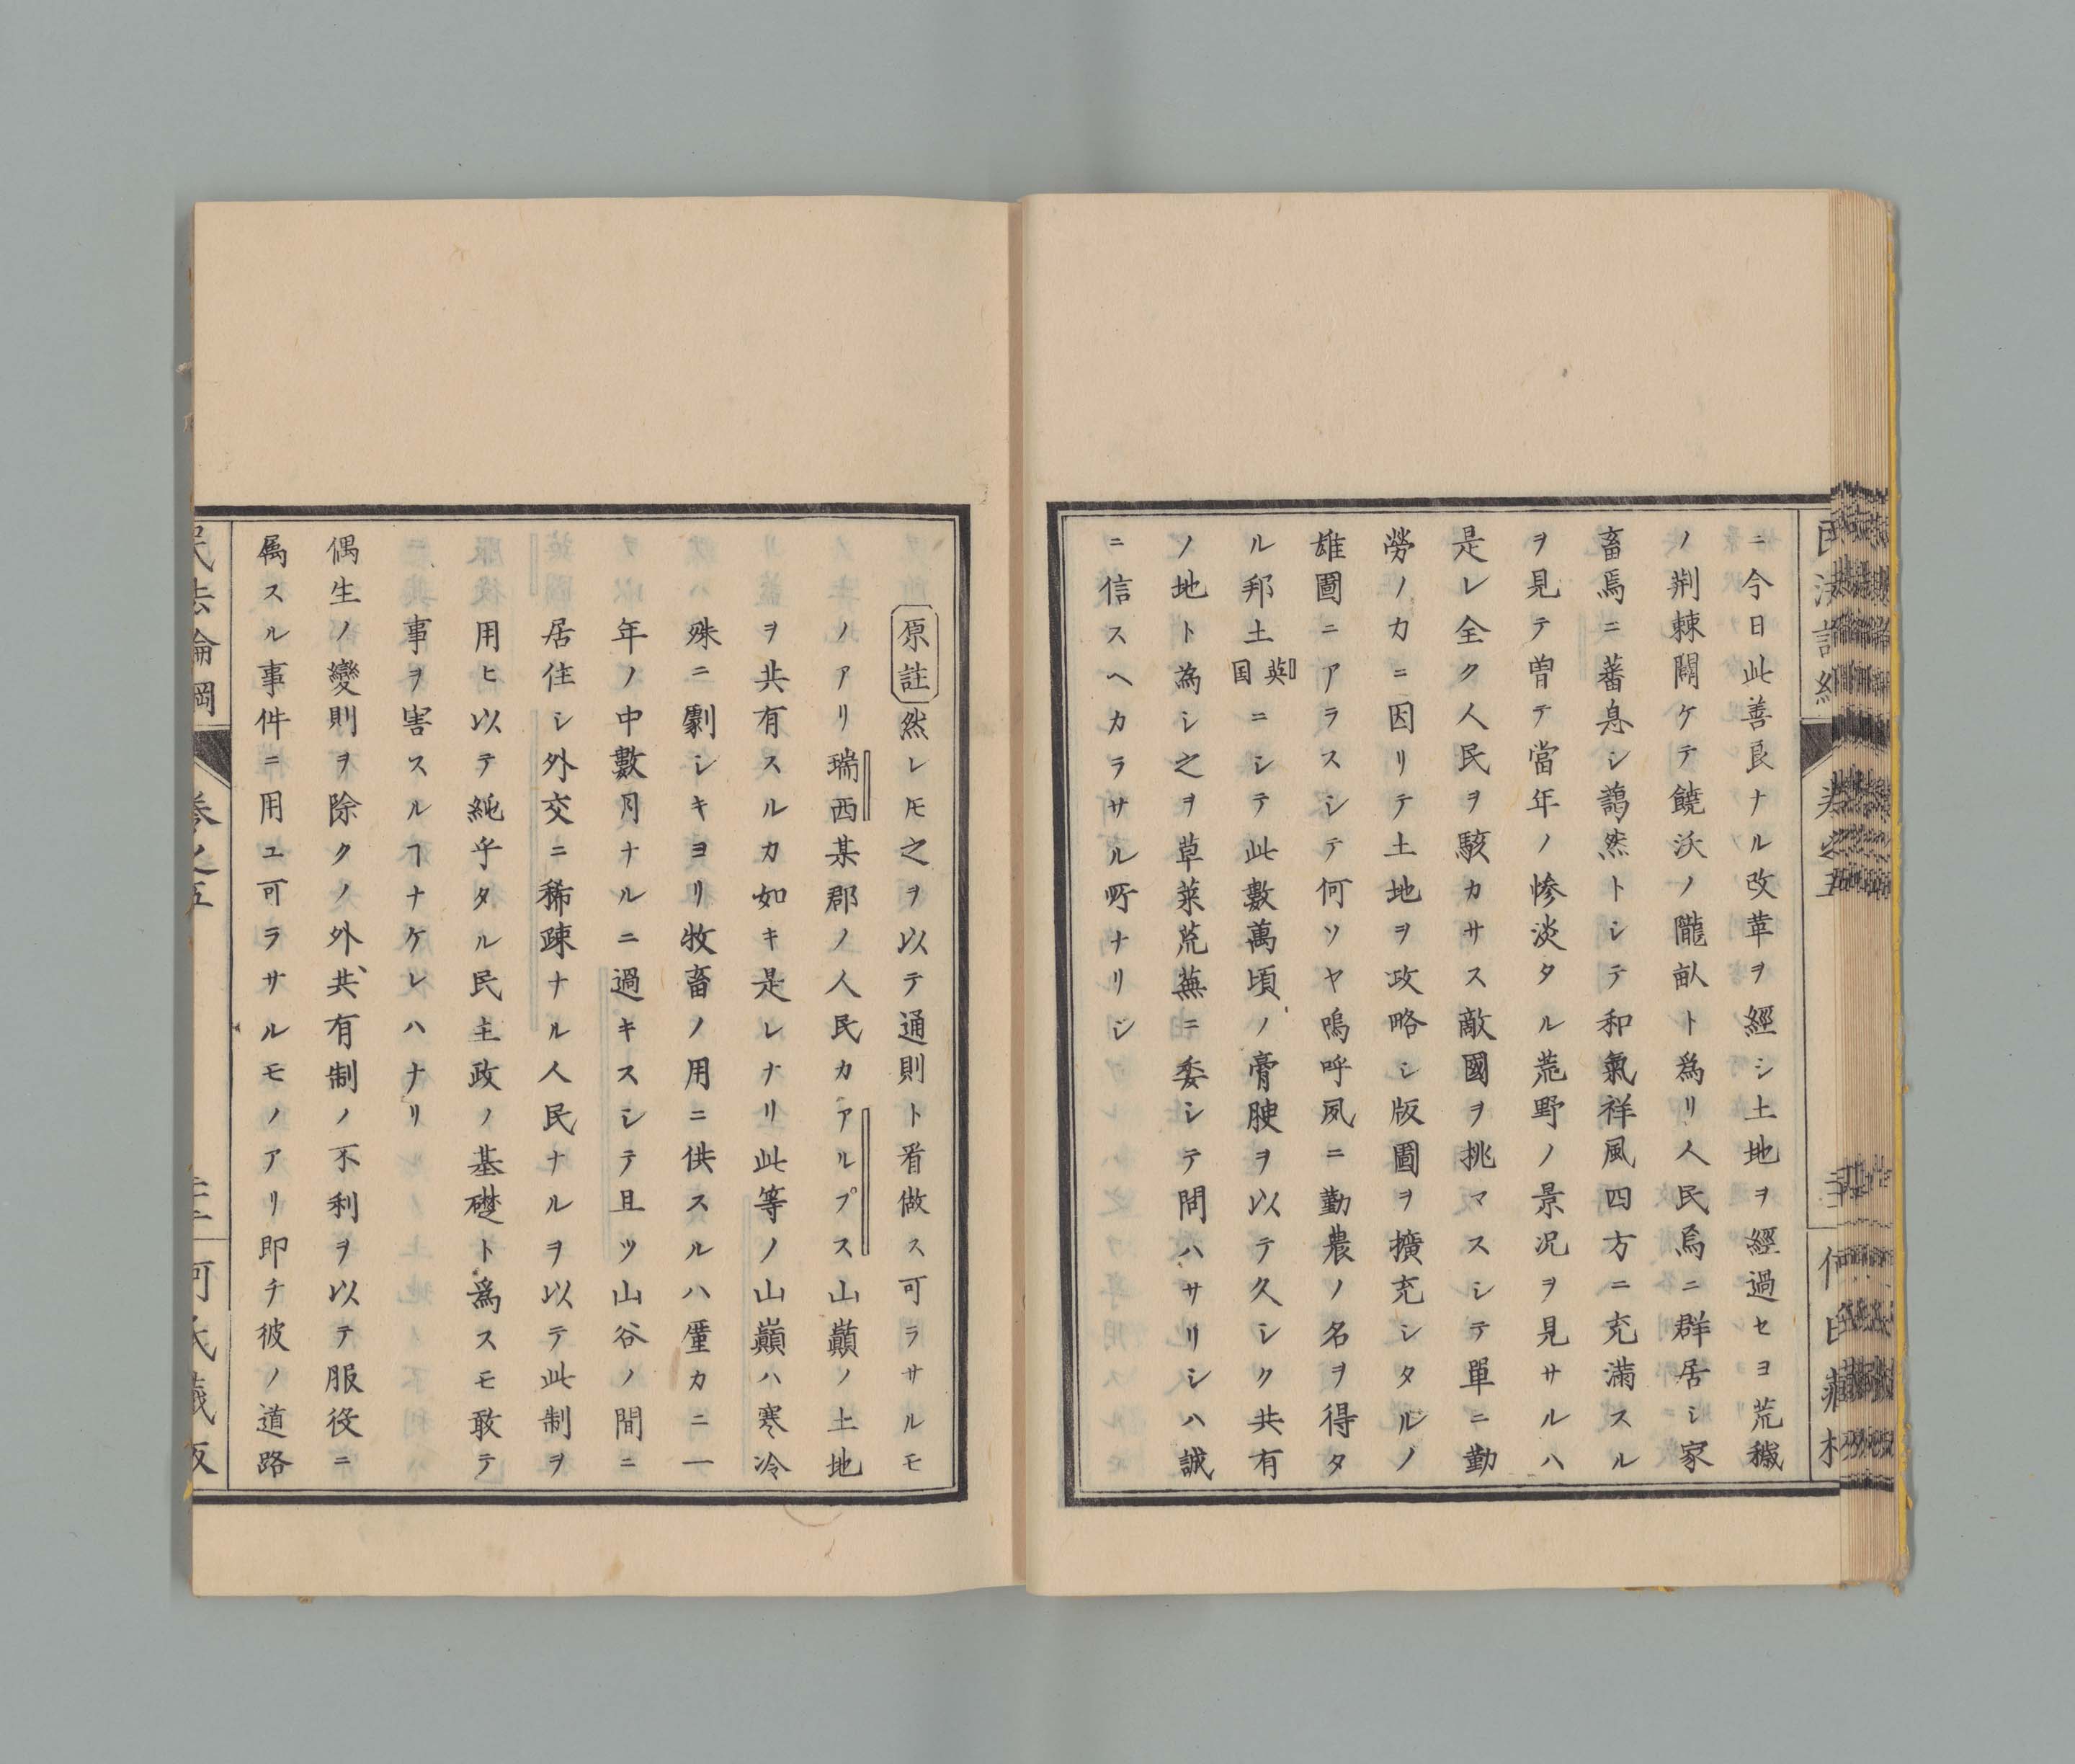 ニ今日此善良ナル改革ヲ經シ土地ヲ經過セヨ荒穢
ノ荆棘闢ケテ饒沃ノ隴畝ト爲リ人民焉ニ群居シ家
畜焉ニ蕃息シ藹然トシテ和氣祥風四方ニ充滿スル
ヲ見テ曽テ當年ノ惨淡タル荒野ノ景况ヲ見サルハ
是レ全ク人民ヲ駭カサス敵國ヲ挑マスシテ單ニ勤
勞ノカニ因リテ土地ヲ攻略シ版圖ヲ擴充シタルノ
雄圖ニアラスシテ何ソヤ嗚呼夙ニ勤農ノ名ヲ得タ
ル邦土英国ニシテ此數萬頃ノ膏腴ヲ以テ久シク共有
ノ地ト為シ之ヲ草萊荒蕪ニ委シテ問ハサリシハ誠
ニ信スヘカラサル所ナリシ
原註 然レ𪜈之ヲ以テ通則ト看做ス可ラサルモ
ノアリ瑞西某郡ノ人民カアルプス山巓ノ土地
ヲ共有スルカ如キ是レナリ此等ノ山巓ハ寒冷
殊ニ劇シキヨリ牧畜ノ用ニ供スルハ厪カニ一
年ノ中數月ナルニ過キスシテ且ツ山谷ノ間ニ
居住シ外交ニ稀疎ナル人民ナルヲ以テ此制ヲ
用ヒ以テ純乎タル民主政ノ基礎ト爲スモ敢テ
事ヲ害スルヿナケレハナリ
偶生ノ變則ヲ除クノ外共有制ノ不利ヲ以テ服役ニ
属スル事件ニ用ユ可ラサルモノアリ即チ彼ノ道路
民法論綱 卷之五
何氏藏版